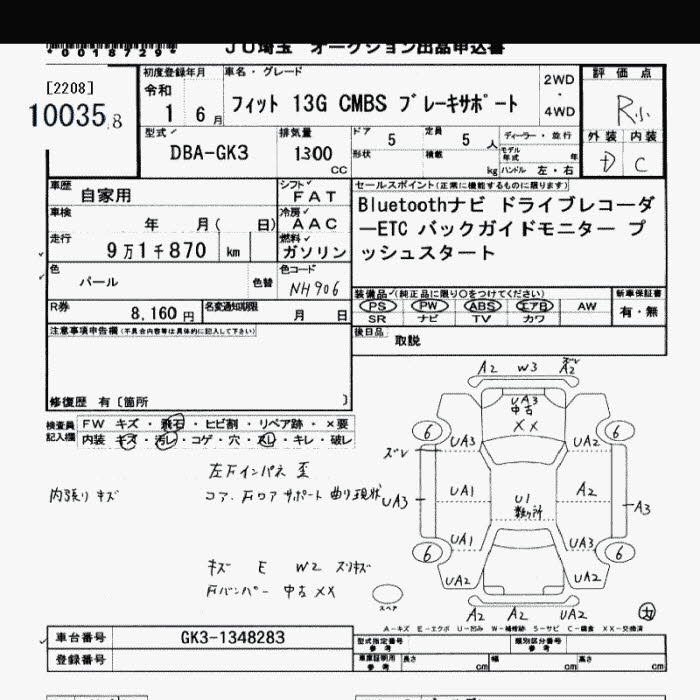 *0018729*
JU埼玉 オークション出品申込書
[2208]
10035.8
初度登録年月 車名・グレード
令和 1 6 月
フィット 13G CMBS ブレーキサポート
2WD
・
4WD
評価点
R小
外装 内装
D C
型式
DBA-GK3
排気量
1300 CC
ドア 5 定員 5 人
形状 積載 kg
ディーラー・並行
モデル年式 年
ハンドル 左・右
車歴 自家用
シフト FAT
セールスポイント(正常に機能するものに限ります)
車検 年 月( 日)
冷房 AAC
Bluetoothナビ ドライブレコーダ
ーETC バックガイドモニター プ
ッシュスタート
走行 9万1千870 km
燃料 ガソリン
色 パール 色替
色コード NH906
装備品(純正品に限り○をつけてください)
新車保証書
PS PW ABS エアB AW
有・無
SR ナビ TV カワ
R券 8,160 円
名変通知期限 月 日
後日品 取説
注意事項申告欄(不具合内容等は具体的に記入して下さい)
修復歴 有〔箇所 〕
検査員記入欄
FW キズ・飛石・ヒビ割・リペア跡・×要
内装 キズ・汚レ・コゲ・穴・スレ・キレ・破レ
内張り キズ
左Fインパネ 歪
コア.右ロアサポート 曲り現状
キズ E W2 スリキズ
Fバンパー 中古 XX
A2 W3 ズレ A2
UA3
中古
XX
6 6
ズレ UA3 UA2
UA3 UA1 U1 A2 A3
数ヶ所
UA1 UA3
6 6
UA2 UA2
スペア
A2 A2 UA2
A-キズ E-エクボ U-凹み W-補修跡 S-サビ C-腐食 XX-交換済
車台番号 GK3-1348283
型式指定番号 参考
類別区分番号 参考
登録番号
車庫証明用 参考 長さ cm 幅 cm 高さ cm